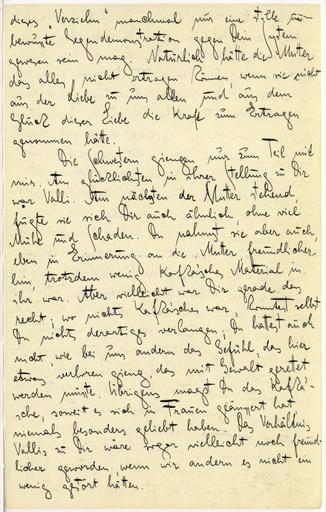 dieses "Verziehn" manchmal nur eine stille un-
bewusste Gegendemonstration gegen Dein System
gewesen sein mag. Natürlich hätte die Mutter
das alles nicht ertragen können, wenn sie nicht
aus der Liebe zu uns allen und aus dem
Glück dieser Liebe die Kraft zum Ertragen
genommen hätte.
Die Schwestern giengen nur zum Teil mit
mir. Am glücklichsten in ihrer Stellung zu Dir
war Valli. Am nächsten der Mutter stehend,
fügte sie sich Dir auch ähnlich ohne viel
Mühe und Schaden. Du nahmst sie aber auch,
eben in Erinnerung an die Mutter freundlicher
hin, trotzdem wenig Kafka'sches Material in
ihr war. Aber vielleicht war Dir gerade das
recht; wo nichts Kafka'sches war, konntest selbst
Du nichts derartiges verlangen; Du hattest auch
nicht, wie bei uns andern das Gefühl, das hier
etwas verloren gieng, das mit Gewalt gerettet
werden müsste. Übrigens magst Du das Kafka'-
sche, soweit es sich in Frauen geäussert hat
niemals besonders geliebt haben. Das Verhältnis
Vallis zu Dir wäre sogar vielleicht noch freund-
licher geworden, wenn wir andern es nicht ein
wenig gestört hätten.